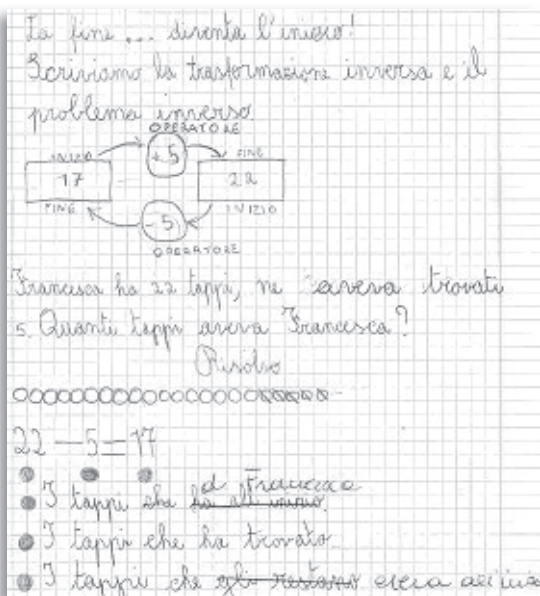 La fine... diventa l'inizio!
Scriviamo la trasformazione inversa e il
problema inverso.
OPERATORE
INIZIO +5 FINE
17 22
FINE -5 INIZIO
OPERATORE
Francesca ha 22 tappi, ne aveva trovati
5. Quanti tappi aveva Francesca?
Risolvo
22-5=17
d Francesca
I tappi che ha all'inizio.
I tappi che ha trovato.
I tappi che gli restano aveva all'